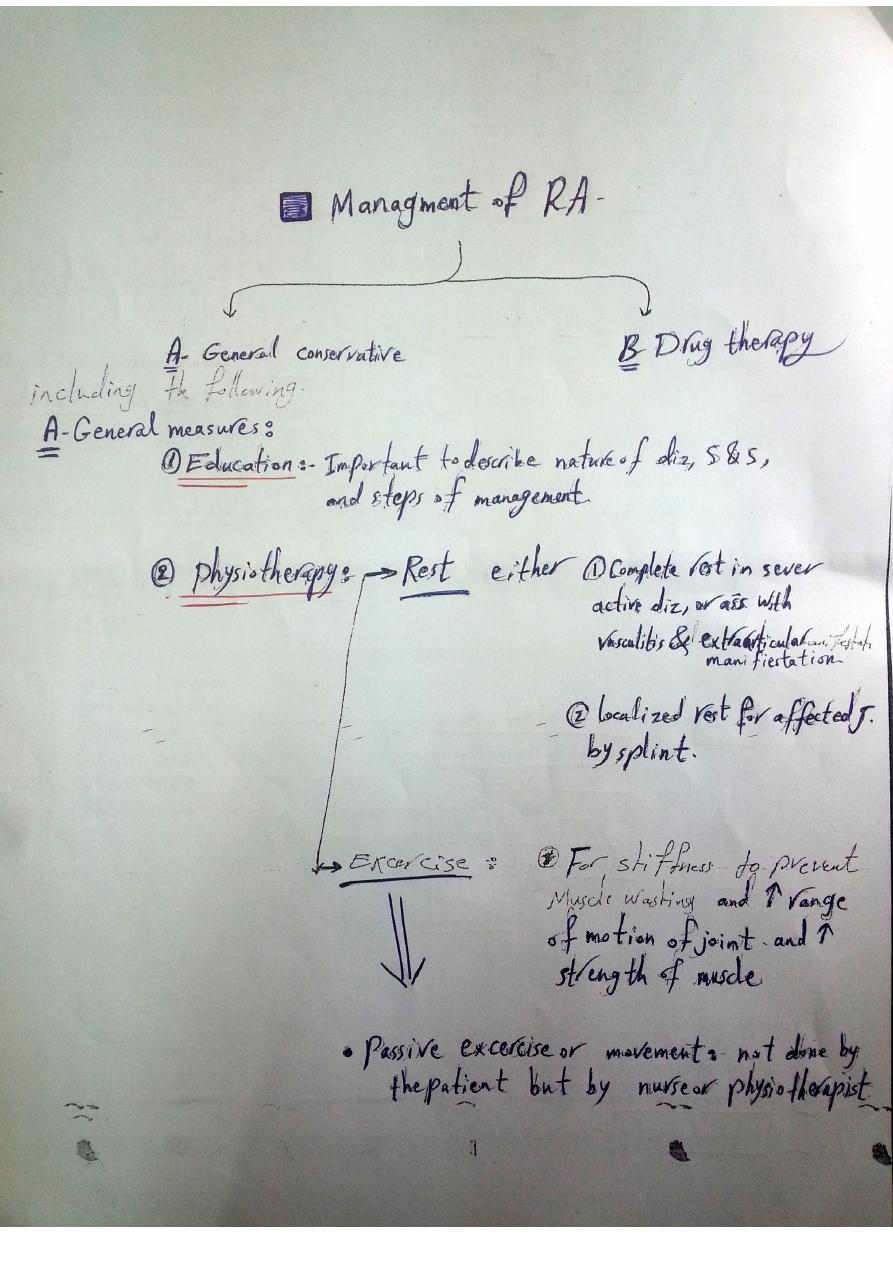 Managment of RA-
A- General conservative
B Drug therapy
including the following.
A-General measures:
① Education :- Important to describe nature of diz, S & S,
and steps of management
② Physiotherapy: → Rest either ① Complete rest in sever
active diz, or ass with
vasculitis & extraarticular
manifiestation
② localized rest for affected J.
by splint.
→ Excercise : For stiffness to prevent
Muscle wasting and ↑ range
of motion of joint. and ↑
strength of muscle
• Passive excercise or movement: not done by
the patient but by nurse or physiotherapist